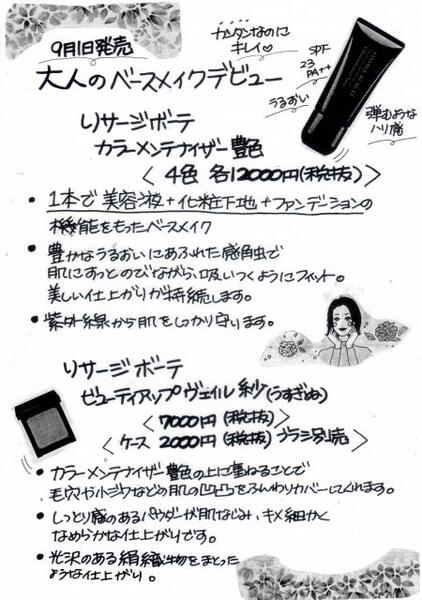 9月1日発売
カンタンなのに
キレイ♡
SPF
23
PA++
大人のベースメイクデビュー
うるおい
弾むような
ハリ感
リサージ ボーテ
カラーメンテナイザー 豊色
〈 4色 各12000円(税抜) 〉
• 1本で美容液+化粧下地+ファンデーションの
機能をもったベースメイク
• 豊かなうるおいにあふれた感触で
肌にすっとのびながら、吸いつくようにフィット。
美しい仕上がりが持続します。
• 紫外線から肌をしっかり守ります。
リサージ ボーテ
ビューティアップヴェイル 紗(うすぎぬ)
〈 7000円(税抜) 〉
〈 ケース 2000円(税抜) ブラシ別売 〉
• カラーメンテナイザー豊色の上に重ねることで
毛穴や小ジワなどの肌の凹凸をふんわりカバーしてくれます。
• しっとり感のあるパウダーが肌なじみ、キメ細かく
なめらかな仕上がりです。
• 光沢のある絹織物をまとった
ような仕上がり。